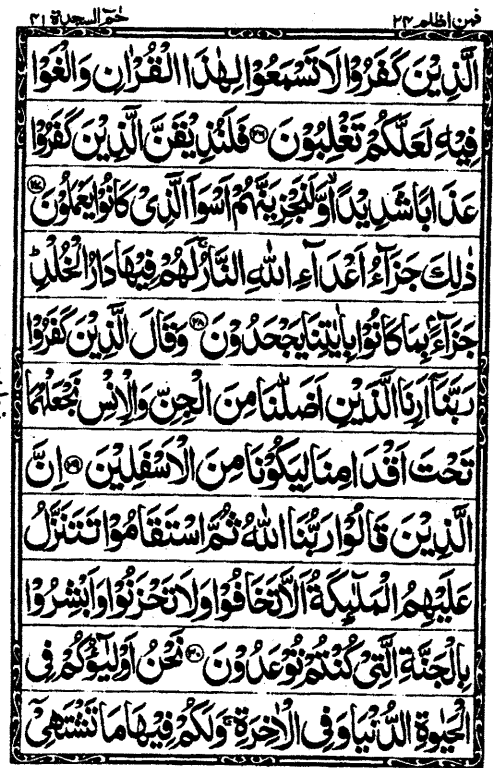 فمن اظلم ۲۴
حٰم السجدة ۴۱
الَّذِيْنَ كَفَرُوْا لَا تَسْمَعُوْا لِهٰذَا الْقُرْاٰنِ وَالْغَوْا
فِيْهِ لَعَلَّكُمْ تَغْلِبُوْنَ ۲۶ فَلَنُذِيْقَنَّ الَّذِيْنَ كَفَرُوْا
عَذَابًا شَدِيْدًا ۙ وَّلَنَجْزِيَنَّهُمْ اَسْوَاَ الَّذِيْ كَانُوْا يَعْمَلُوْنَ ۲۷
ذٰلِكَ جَزَآءُ اَعْدَآءِ اللّٰهِ النَّارُ ۚ لَهُمْ فِيْهَا دَارُ الْخُلْدِ ؕ
جَزَآءًۢ بِمَا كَانُوْا بِاٰيٰتِنَا يَجْحَدُوْنَ ۲۸ وَقَالَ الَّذِيْنَ كَفَرُوْا
رَبَّنَآ اَرِنَا الَّذَيْنِ اَضَلّٰنَا مِنَ الْجِنِّ وَالْاِنْسِ نَجْعَلْهُمَا
تَحْتَ اَقْدَامِنَا لِيَكُوْنَا مِنَ الْاَسْفَلِيْنَ ۲۹ اِنَّ
الَّذِيْنَ قَالُوْا رَبُّنَا اللّٰهُ ثُمَّ اسْتَقَامُوْا تَتَنَزَّلُ
عَلَيْهِمُ الْمَلٰٓئِكَةُ اَلَّا تَخَافُوْا وَلَا تَحْزَنُوْا وَاَبْشِرُوْا
بِالْجَنَّةِ الَّتِيْ كُنْتُمْ تُوْعَدُوْنَ ۳۰ نَحْنُ اَوْلِيٰٓؤُكُمْ فِي
الْحَيٰوةِ الدُّنْيَا وَفِي الْاٰخِرَةِ ۚ وَلَكُمْ فِيْهَا مَا تَشْتَهِيْٓ